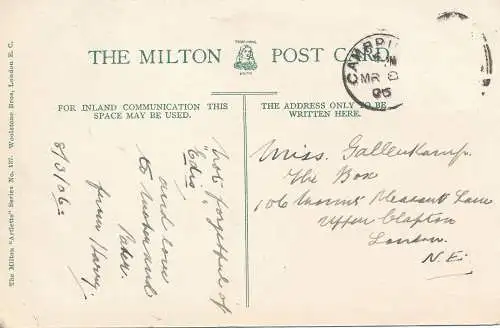 THE MILTON POST CARD
CAMBRI
MR 8
06
FOR INLAND COMMUNICATION THIS
SPACE MAY BE USED.
THE ADDRESS ONLY TO BE
WRITTEN HERE.
The Milton "Artlette" Series No. 137. Woolstone Bros., London E.C.
8/3/06.
"Not forgetful of
Edis"
and love
to Mater and
Pater.
from Harry.
Miss. Gallenkamp.
The Box
106 Mount Pleasant Lane
Upper Clapton
London.
N.E.